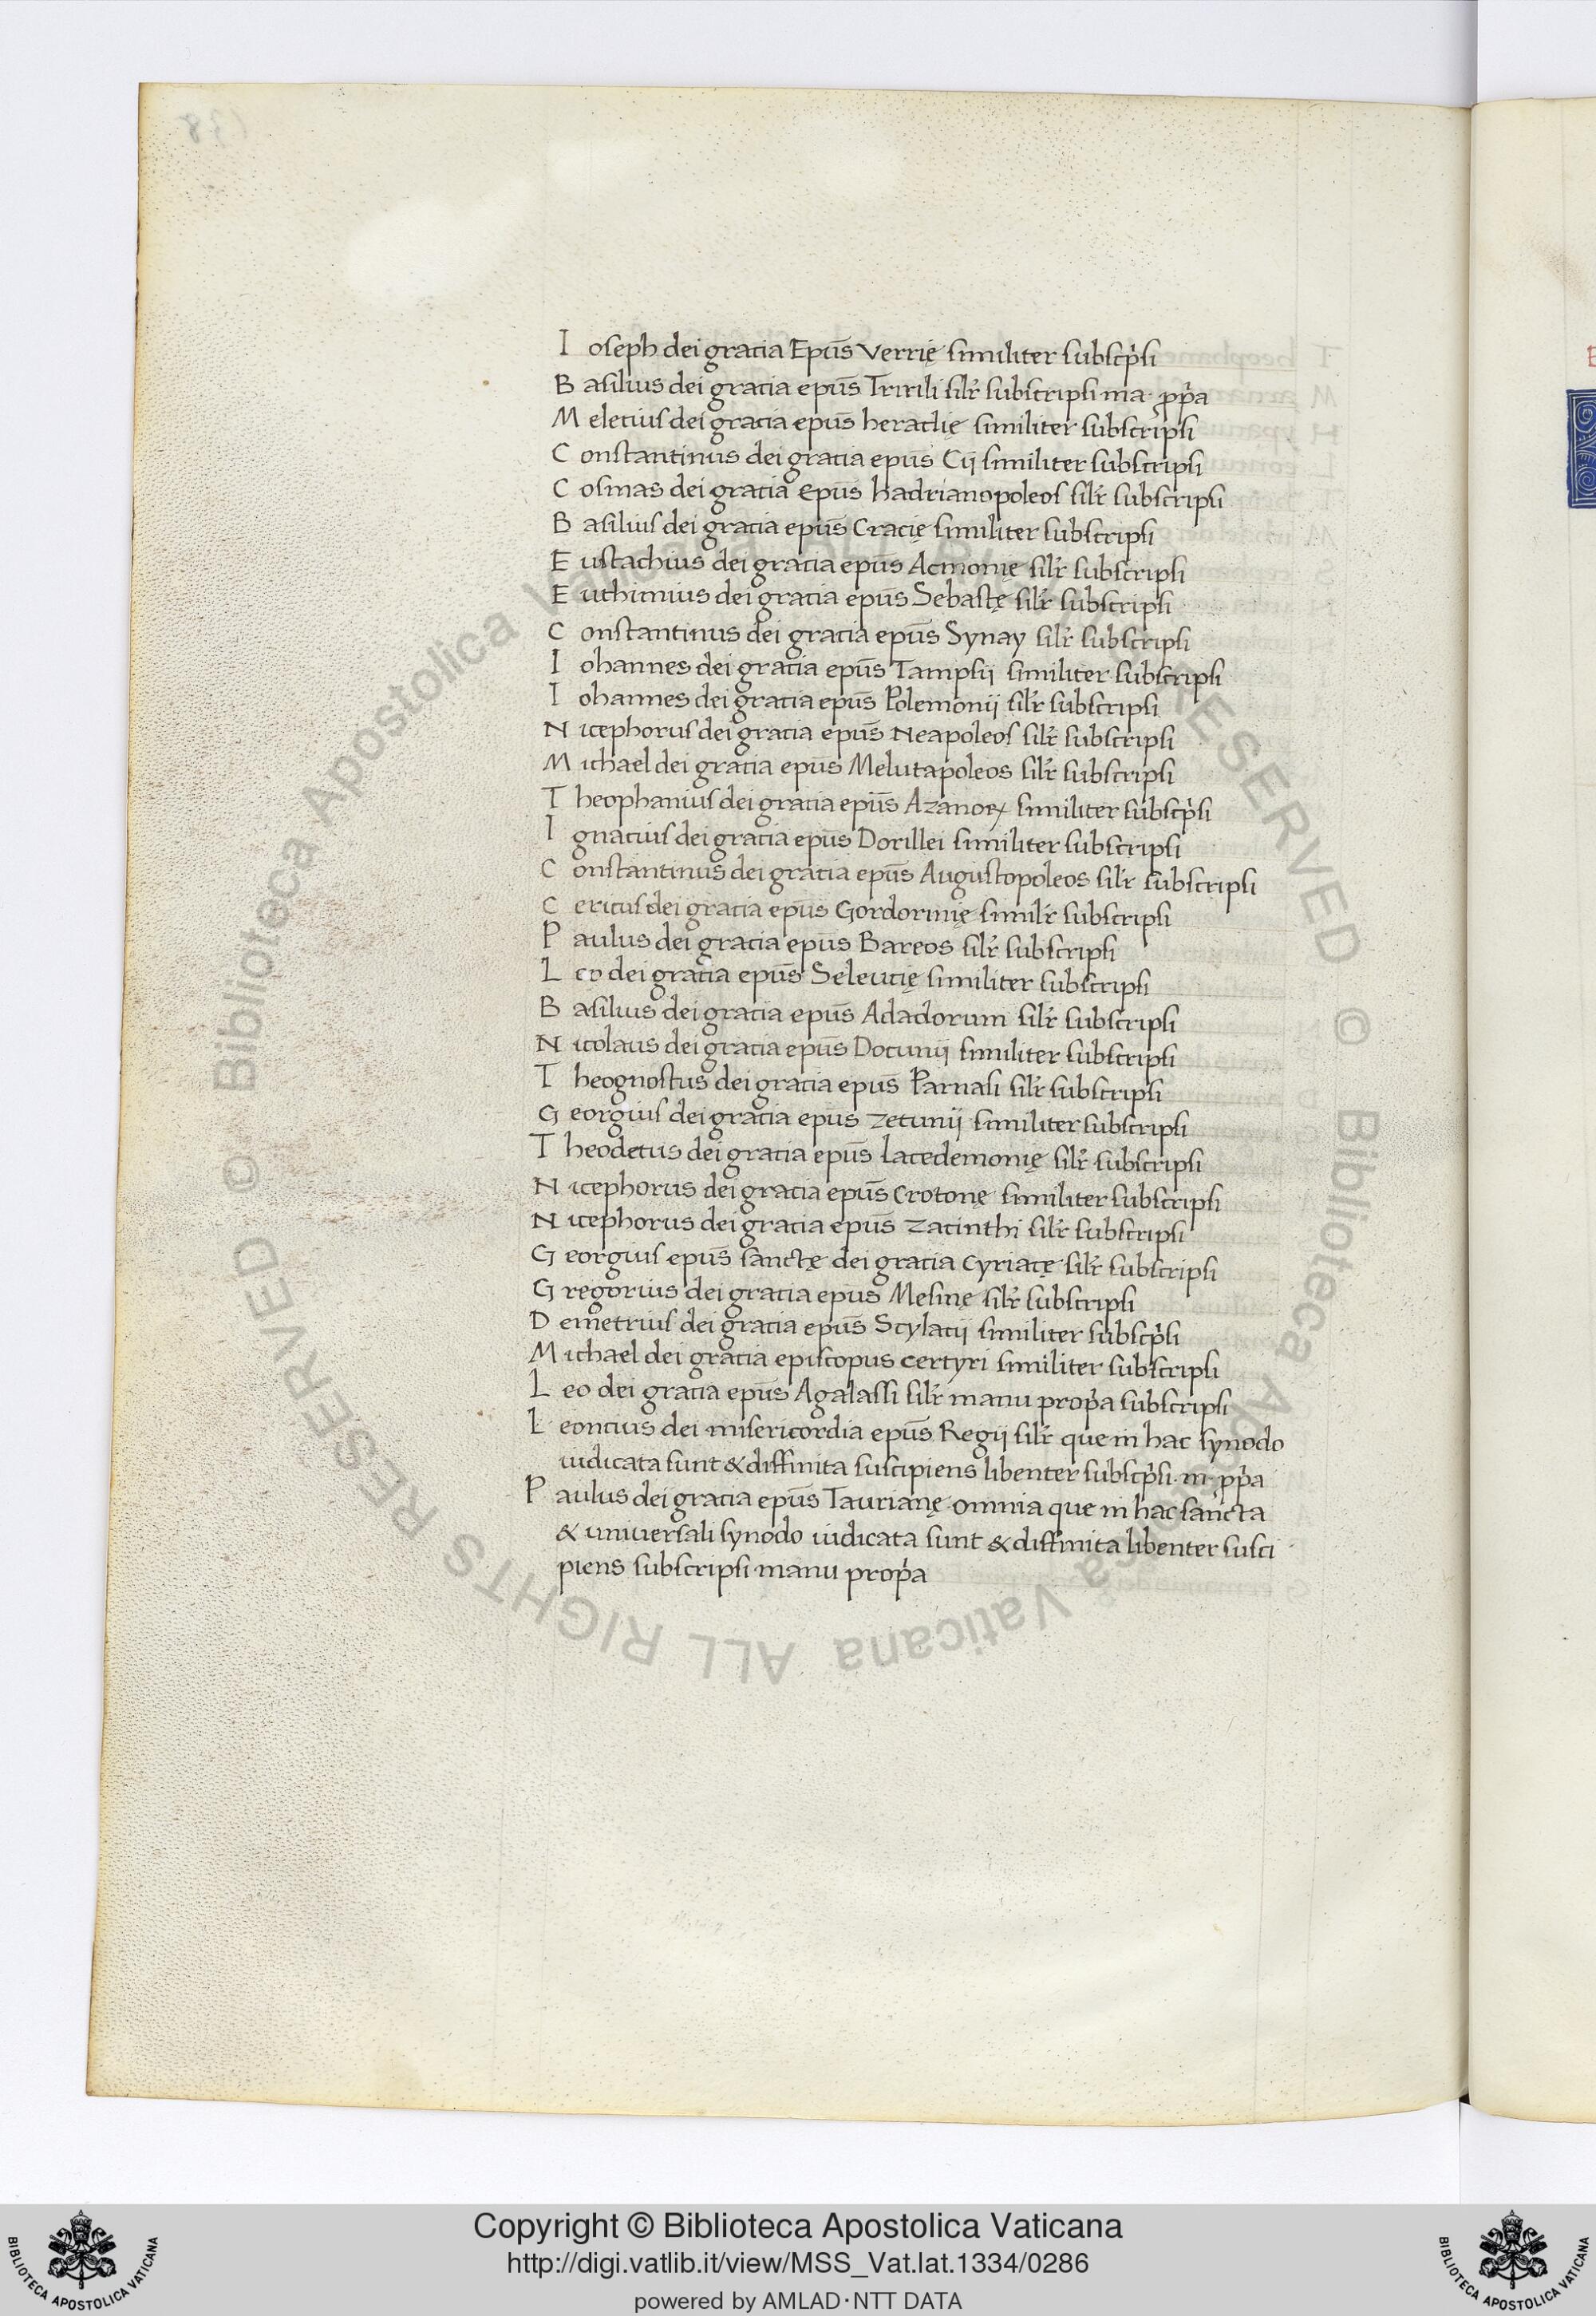 Ioseph dei gracia Epus̄ Verrię similiter subscṗsi
Basilius dei gracia epus̄ Tririli silr̄ subscripsi ma· pp̄a
Melecius dei gracia epus̄ heraclię similiter subscripsi
Constantinus dei gracia epus̄ Cij similiter subscripsi
Cosmas dei gracia Epus̄ hadrianopoleos silr̄ subscripsi
Basilius dei gracia epus̄ Cracię similiter subscripsi
Eustachius dei gracia epus̄ Acmonię silr̄ subscripsi
Euthimius dei gracia epus̄ Sebastę silr̄ subscripsi
Constantinus dei gracia epus̄ Synay silr̄ subscripsi
Iohannes dei gracia epus̄ Tampsij similiter subscripsi
Iohannes dei gracia epus̄ Polemonij silr̄ subscripsi
Nicephorus dei gracia epus̄ Neapoleos silr̄ subscripsi
Michael dei gracia epus̄ Melutapoleos silr̄ subscripsi
Theophanius dei gracia epus̄ Azanoꝝ similiter subscṗsi
Ignacius dei gracia epus̄ Dorillei similiter subscripsi
Constantinus dei gracia epus̄ Augustopoleos silr̄ subscripsi
Cericus dei gracia epus̄ Gordorinię similr̄ subscripsi
Paulus dei gracia epus̄ Bareos silr̄ subscripsi
Leo dei gracia epus̄ Seleucię similiter subscripsi
Basilius dei gracia epus̄ Adadorum silr̄ subscripsi
Nicolaus dei gracia epus̄ Docunij similiter subscripsi
Theognostus dei gracia epus̄ Parnasi silr̄ subscripsi
Georgius dei gracia epus̄ zetunij similiter subscripsi
Theodetus dei gracia epus̄ lacedemonię silr̄ subscripsi
Nicephorus dei gracia epus̄ Crotonę similiter subscripsi
Nicephorus dei gracia epus̄ zacinthi silr̄ subscripsi
Georgius epus̄ sanctę dei gracia Cyriacę silr̄ subscripsi
Gregorius dei gracia epus̄ Mesinę silr̄ subscripsi
Demetrius dei gracia epus̄ Scylacij similiter subscṗsi
Michael dei gracia episcopus certyri similiter subscripsi
Leo dei gracia epus̄ Agalassi silr̄ manu prop̄a subscripsi
Leoncius dei misericordia epus̄ Regij silr̄ que in hac synodo
iudicata sunt & diffinita suscipiens libenter subscṗsi· m· pp̄a
Paulus dei gracia epus̄ Taurianę omnia que in hac sancta
& universali synodo iudicata sunt & diffinita libenter susci
piens subscripsi manu prop̄a
Copyright © Biblioteca Apostolica Vaticana
http://digi.vatlib.it/view/MSS_Vat.lat.1334/0286
powered by AMLAD·NTT DATA
BIBLIOTECA APOSTOLICA VATICANA
BIBLIOTECA APOSTOLICA VATICANA
© Biblioteca Apostolica Vaticana ALL RIGHTS RESERVED © Biblioteca Apostolica Vaticana ALL RIGHTS RESERVED